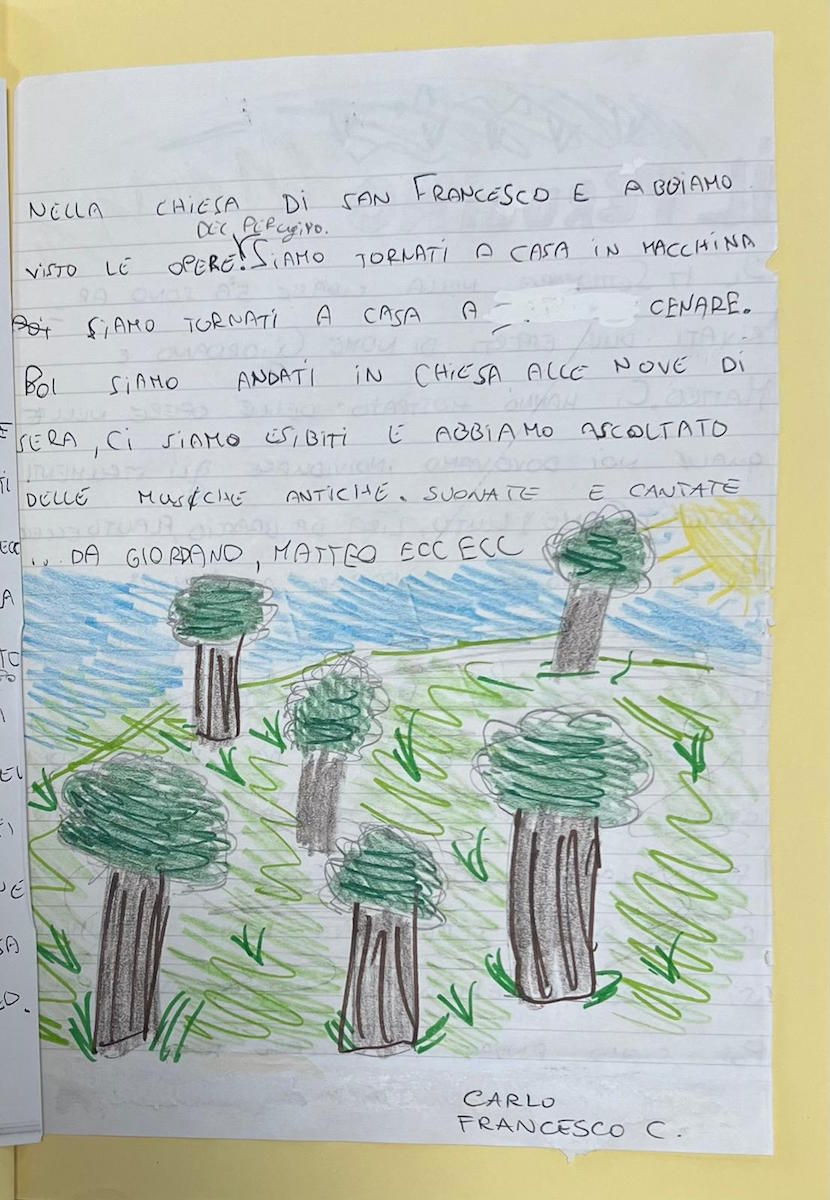 NELLA CHIESA DI SAN FRANCESCO E ABBIAMO
DEL PERUGINO.
VISTO LE OPERE. SIAMO TORNATI A CASA IN MACCHINA
POI SIAMO TORNATI A CASA A CENARE.
POI SIAMO ANDATI IN CHIESA ALLE NOVE DI
SERA, CI SIAMO ESIBITI E ABBIAMO ASCOLTATO
DELLE MUSICHE ANTICHE. SUONATE E CANTATE
... DA GIORDANO, MATTEO ECC ECC
CARLO
FRANCESCO C.